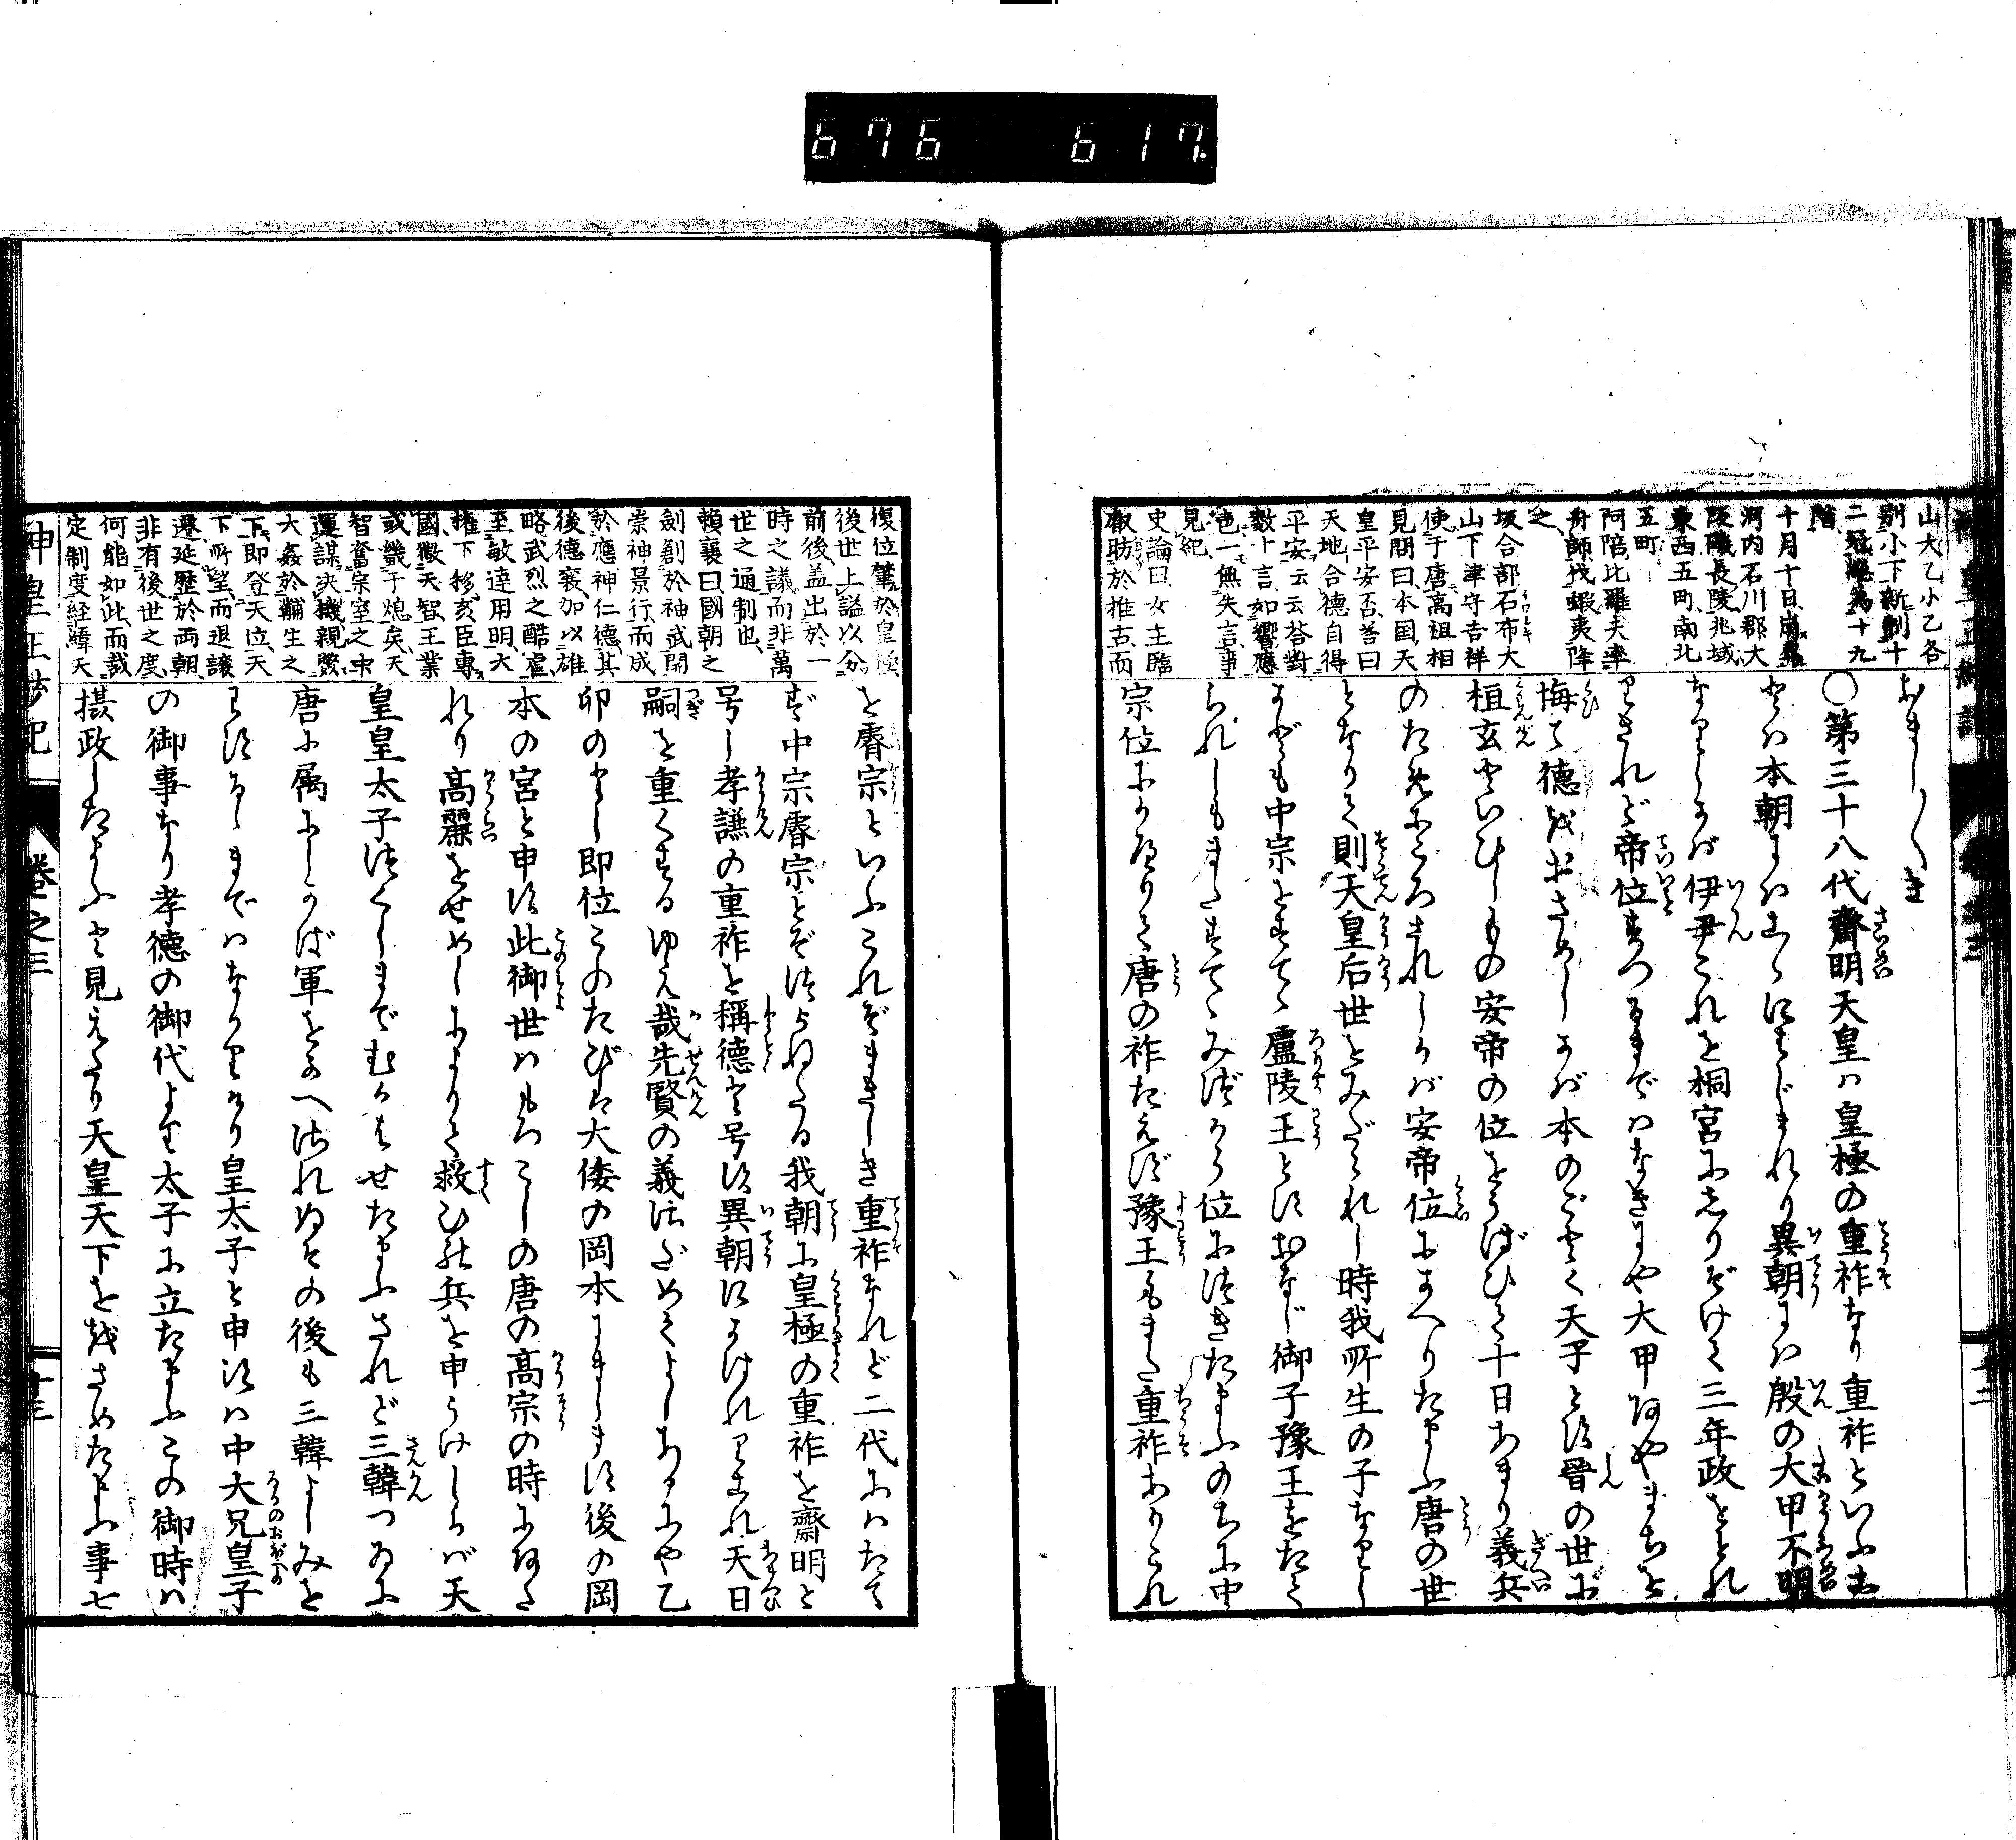 676 617.
山大乙小乙各
別小下新制十
二冠總為十九
階
十月十日崩葬
河内石川郡大
阪磯長陵兆域
東西五町南北
五町
阿陪比羅夫率
舟師伐蝦夷降
之
坂合部石布大
山下津守吉祥
使于唐高祖相
見問曰本国天
皇平安否荅曰
天地合德自得
平安云云荅對
數十言如響應
色一無失言事
見紀
史論曰女主臨
馭昉於推古而
おまし〱き
〇第三十八代齋明天皇ハ皇極の重祚なり重祚といふ
とハ本朝にハこゝにはじまれり異朝にハ殷の大甲不明
なりしかバ伊尹これを桐宮にしりぞけて三年政をとれ
りされど帝位をすつるまでハなきにや大甲あやまちを
悔て德をおさめしかバ本のごとく天子とす晉の世に
桓玄といひしもの安帝の位をうばひて十日あまり義兵
のためにころされしかバ安帝位にかへりたまふ唐の世
となりて則天皇后世をみだられし時我所生の子なりし
かども中宗をすてゝ廬陵王とすおなじ御子豫王をたて
られしもまたすてゝみづから位につきたまふのちに中
宗位にかへりて唐の祚たえず豫王もまた重祚ありこれ
復位肇於皇極
後世上謚以分
前後蓋出於一
時之議而非萬
世之通制也
賴襄曰國朝之
創創於神武開
崇神景行而成
於應神仁德其
後德衰加以雄
略武烈之酷虐
至敏達用明大
權下移亥臣專
國微天智王業
或幾于熄矣天
智奮宗室之中
運謀決機親斃
大姦於黼生之
下即登天位天
下所望而退讓
遷延歴於両朝
非有後世之度
何能如此而哉
定制度経緯天
を睿宗といふこれぞまさしき重祚なれど二代にハたて
ず中宗睿宗とぞつらねたる我朝に皇極の重祚を齋明と
号し孝謙の重祚を稱德と号す異朝にかはれりこれ天日
嗣を重くするゆゑ哉先賢の義さだめてよしあるにや乙
卯のとし即位このたびは大倭の岡本にまします後の岡
本の宮と申す此御世ハもろこしの唐の高宗の時にあた
れり高麗をせめしによりて救ひの兵を申うけしかバ天
皇皇太子つくしまでむかはせたまふされど三韓つゐに
唐に属しかば軍をかへされぬその後も三韓よしみを
わするゝまでハなかりけり皇太子と申すハ中大兄皇子
の御事なり孝德の御代より太子に立たまふこの御時ハ
摂政したまふと見えたり天皇天下を治さめたまふ事七
神皇正統記 卷之三 十三